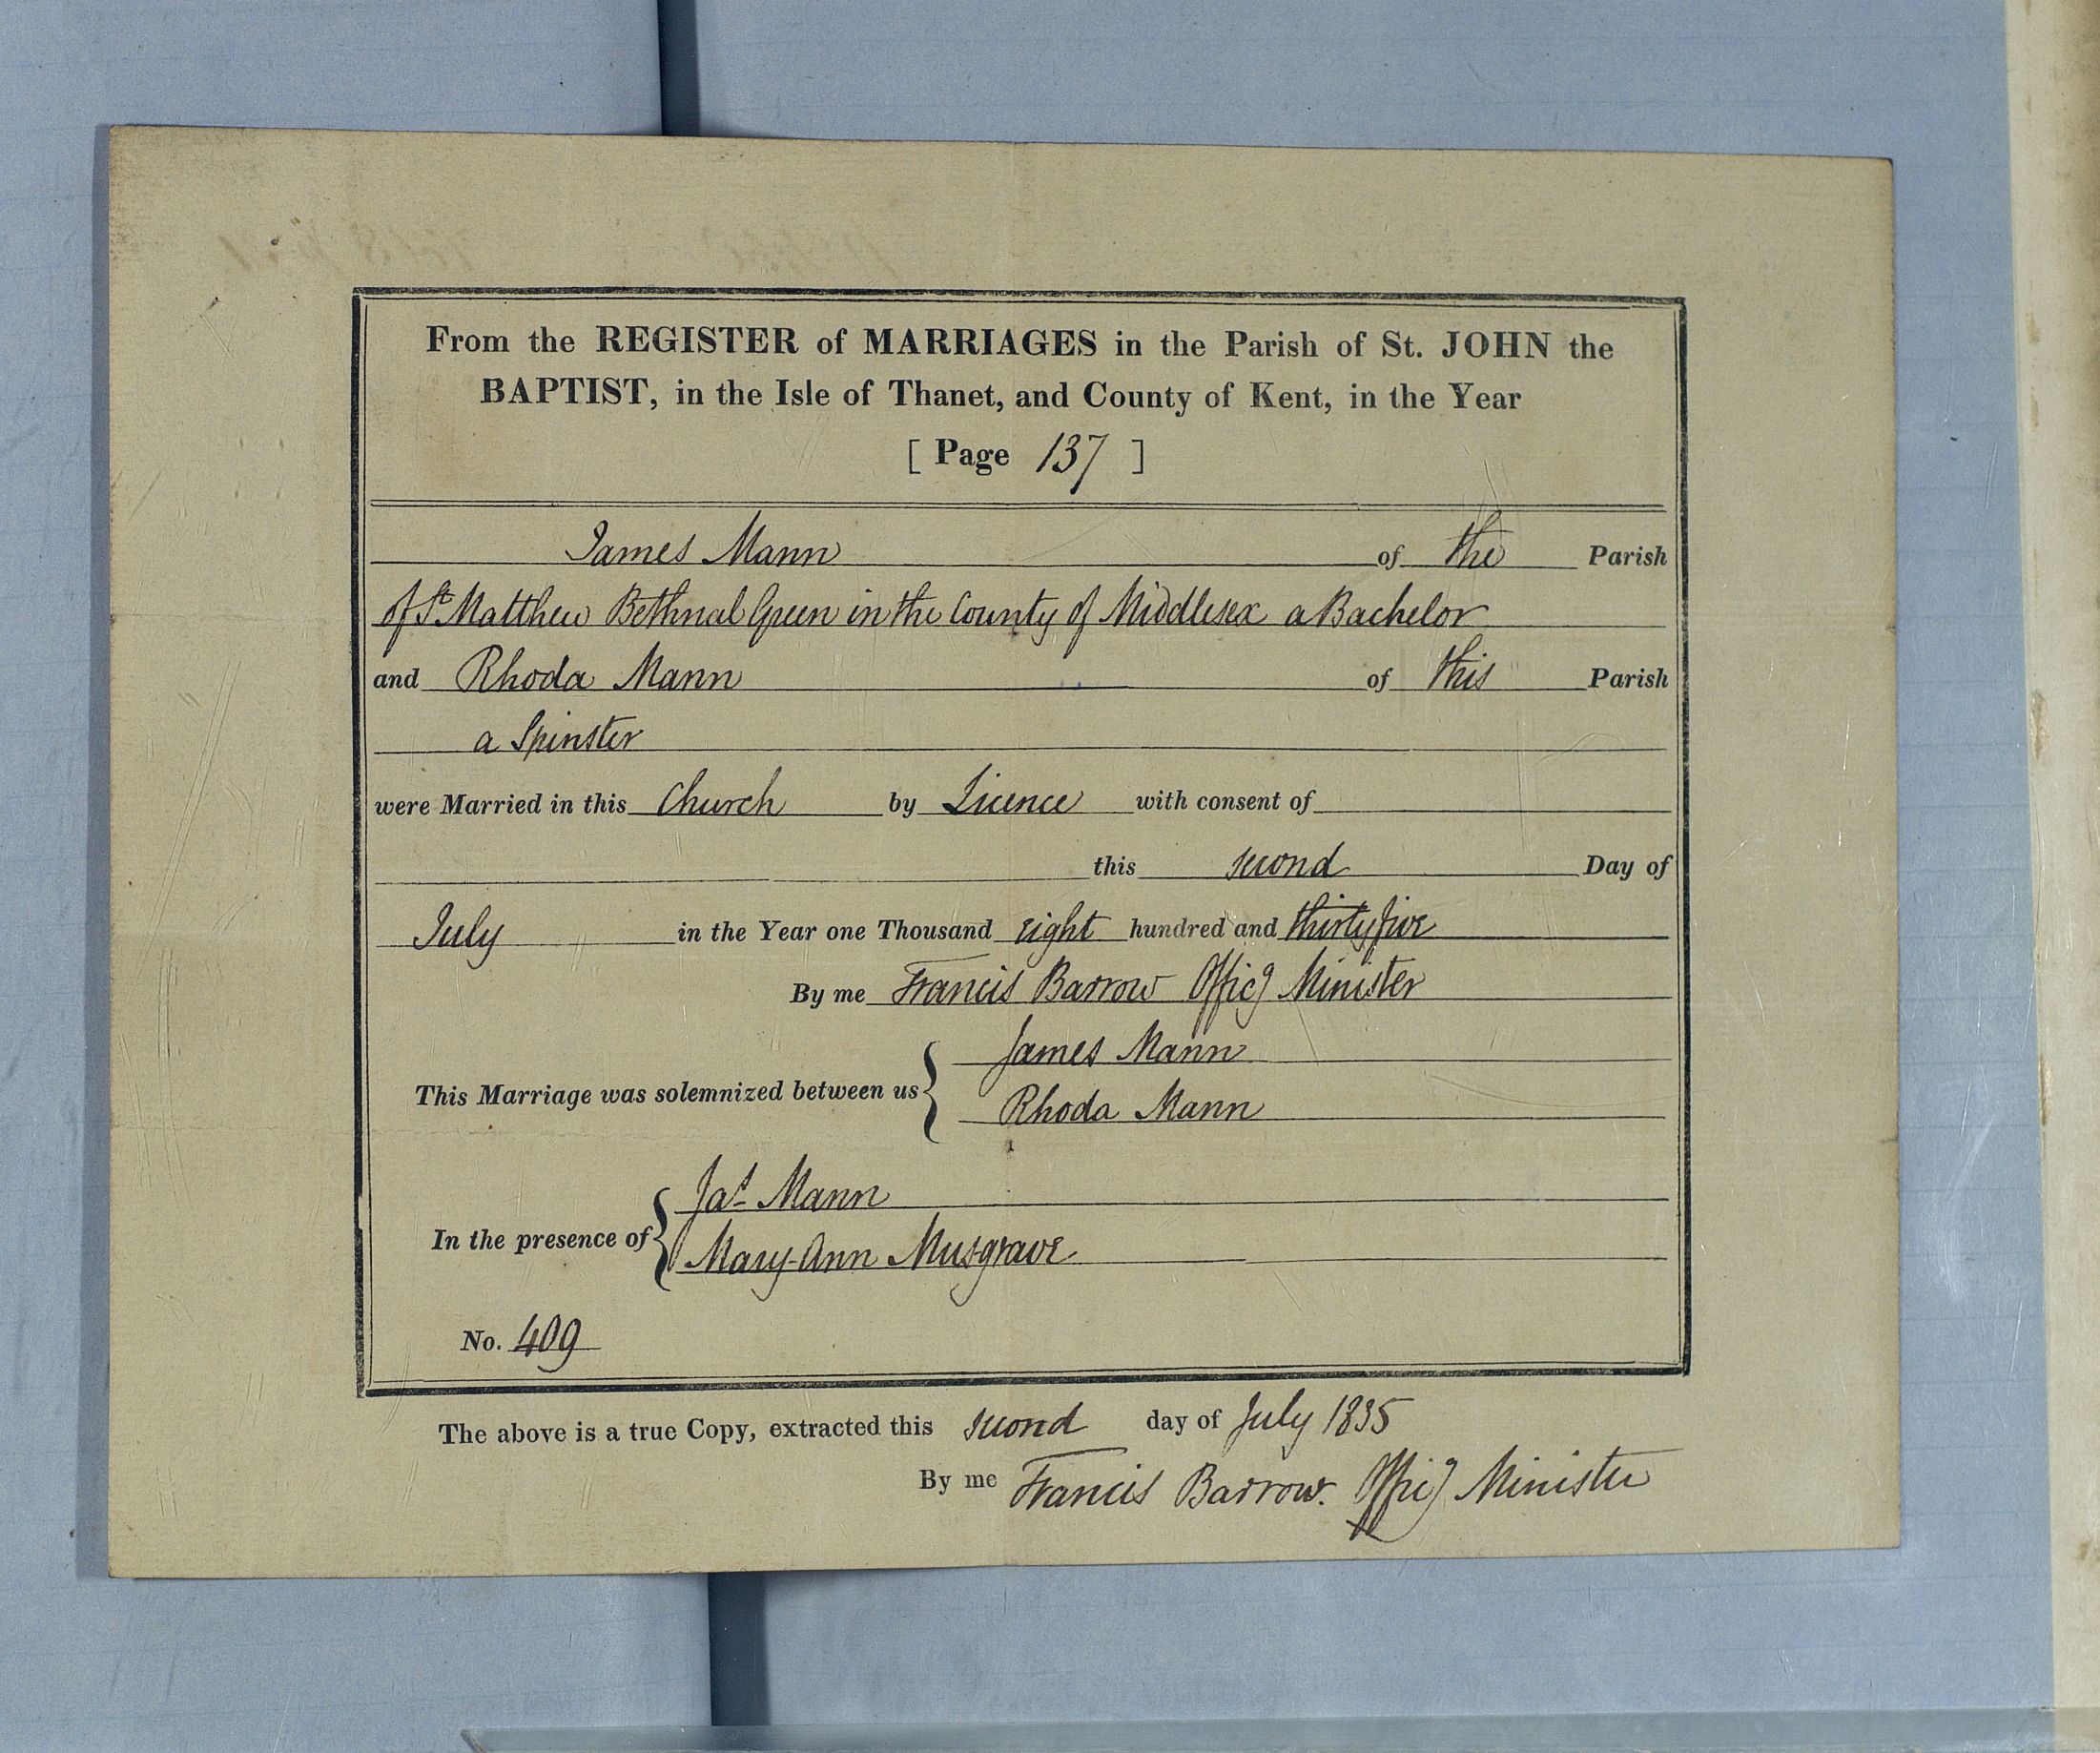 From the REGISTER of MARRIAGES in the Parish of St. JOHN the
BAPTIST, in the Isle of Thanet, and County of Kent, in the Year
[ Page 137 ]
James Mann of the Parish
of St Matthew Bethnal Green in the County of Middlesex a Bachelor
and Rhoda Mann of this Parish
a Spinster
were Married in this Church by Licence with consent of
this second Day of
July in the Year one Thousand eight hundred and thirty five
By me Francis Barrow Offic^g Minister
James Mann
This Marriage was solemnized between us
Rhoda Mann
Jas Mann
In the presence of
Mary-Ann Musgrave
No. 409
The above is a true Copy, extracted this second day of July 1835
By me Francis Barrow. Offic^g Minister